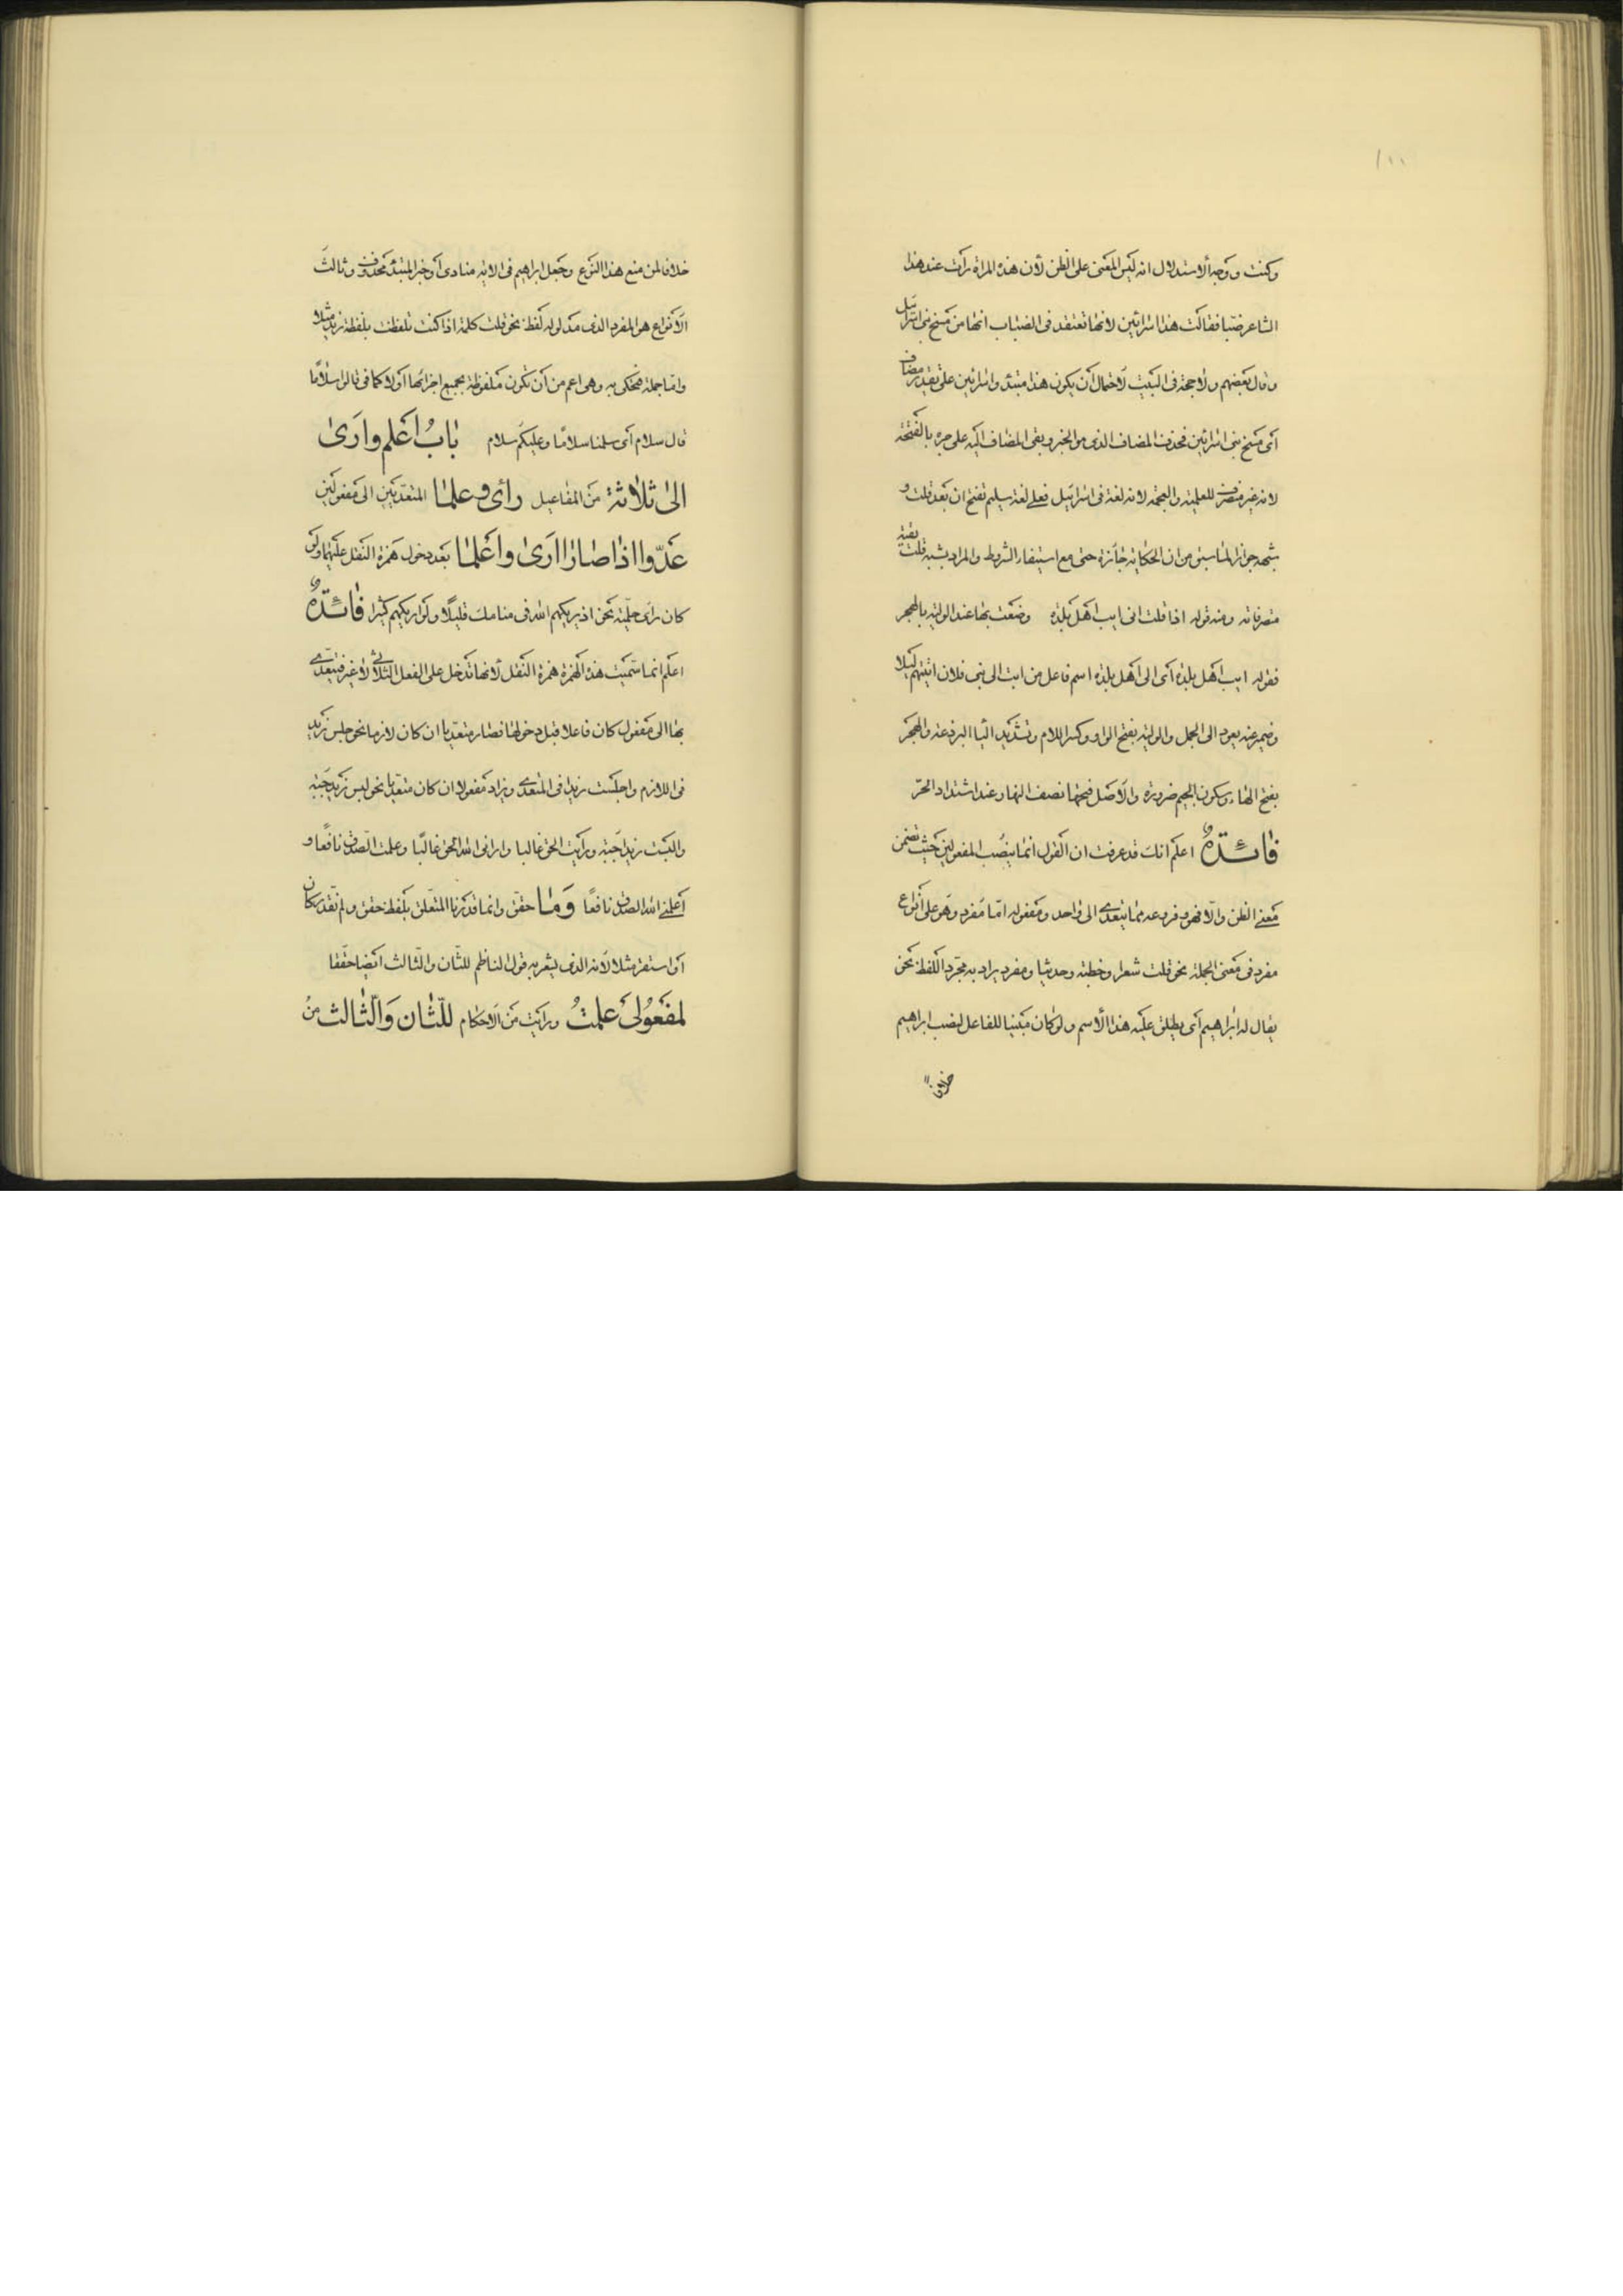 ١٠٠
وكنت ووجه الاستدلال انه ليس المعنى على الظن لأن هذه المراة رأت عند هذا
الشاعر ضبا فقالت هذا اسرائين لانها تعتقد فى الضباب انها من مسخ بنى اسرائيل
وقال بعضهم ولا حجة فى البيت لاحتمال أن يكون هذا مبتدأ واسرائين على تقدير مضاف
أى مسخ بنى اسرائين فحذف المضاف الذى هو الخبر وبقى المضاف اليه على جره بالفتحة
لانه غير منصرف للعلمية والعجمة لانه لغة فى اسرائيل فعلى لغة سليم تفتح ان بعد قلت و
شبهه جواز المناسبق من ان الحكاية جائزة حتى مع استيفاء الشروط والمراد بشبه قلت بقية
متصرفاته ومنه قوله اذا قلت انى ايب اهل بلدة وضعت بها عنه الولية بالهجر
فقوله ايب اهل بلدة أى الى اهل بلدة اسم فاعل من ابت الى بنى فلان اتيتهم ليلا
وضمير عنه يعود الى الجمل والولية بفتح الواو وكسر اللام وتشديد اليا البردعة والهجر
بفتح الهاء وسكون الجيم ضرورة والأصل فتحها نصف النهار عند اشتداد الحرّ
فائدةٌ اعلم انك قد عرفت ان القول انما ينصب المفعولين حيث تضمن
معنى الظن والّا فهو وفروعه مما يتعدى الى واحد ومفعوله امّا مفرد وهو على أنواع
مفرد فى معنى الجملة نحو قلت شعرا وخطبة وحديثا ومفرد يراد به مجرّد اللفظ نحو
يقال له ابراهيم أى يطلق عليه هذا الأسم ولو كان مبنيا للفاعل لنصب ابراهيم
خلافا
خلافا لمن منع هذا النوع وجعل ابراهيم فى الاية منادى أو خبر المبتدأ محذوف وثالث
الأنواع هو المفرد الذى مدلوله لفظ نحو قلت كلمة اذا كنت تلفظت بلفظة زيد مثلا
واما جملة فتحكى به وهى اعم من أن تكون ملفوظة بجميع اجزائها أو لا كما فى قالوا سلامًا
قال سلام أى سلمنا سلامًا وعليكم سلام بابُ اعلم وارى
الى ثلاثة من المفاعيل رأى وعلما المتعديين الى مفعولين
عدّوا اذا صارا ارى واعلما بعد دخول همزة النقل عليهما ولو
كان رأى حلمية نحو اذ يريكهم الله فى منامك قليلًا ولو اريكهم كثيرا فائدةٌ
اعلم انما سميت هذه الهمزة همزة النقل لأنها تدخل على الفعل الثلاثى لا غير فيتعدى
بها الى مفعول كان فاعلا قبل دخولها فصار متعديا ان كان لازما نحو جلس زيد
فى اللازم واجلست زيدا فى المتعدى ويزاد مفعولا ان كان متعديا نحو لبس زيد جبّة
والبست زيدا جبة ورأيت الحق غالبا وارانى الله الحق غالبًا وعلمت الصدق نافعًا و
أعلمنى الله الصدق نافعًا وَمَا حقق وانما قدرنا المتعلق بلفظ حقق ولم نقدر كان
أو استقر مثلا لأنه الذى يشعر به قول الناظم للثان والثالث ايضا حققا
لمفعولى علمتُ ورأيت من الأحكام للثّان وَالثّالث من